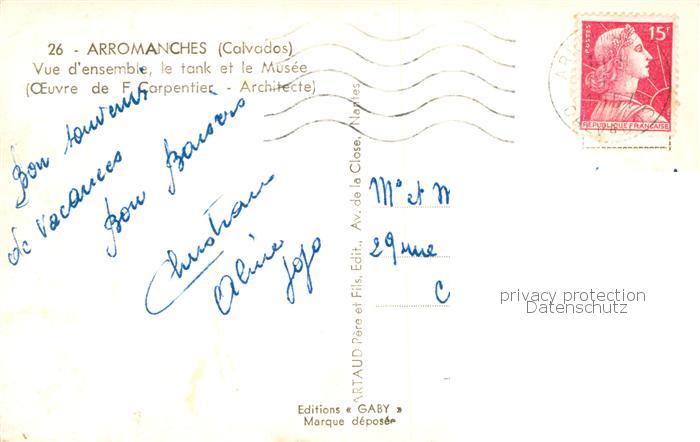 26 - ARROMANCHES (Calvados)
Vue d'ensemble, le tank et le Musée
(Œuvre de F. Carpentier - Architecte)
Bon souvenir
de vacances
Bon Baisers
Christian
Aline
Jojo
ARTAUD Père et Fils, Edit., Av. de la Close, Nantes
Editions « GABY »
Marque déposée
POSTES
15F
REPUBLIQUE FRANÇAISE
Mr et M
29 rue
C
privacy protection
Datenschutz